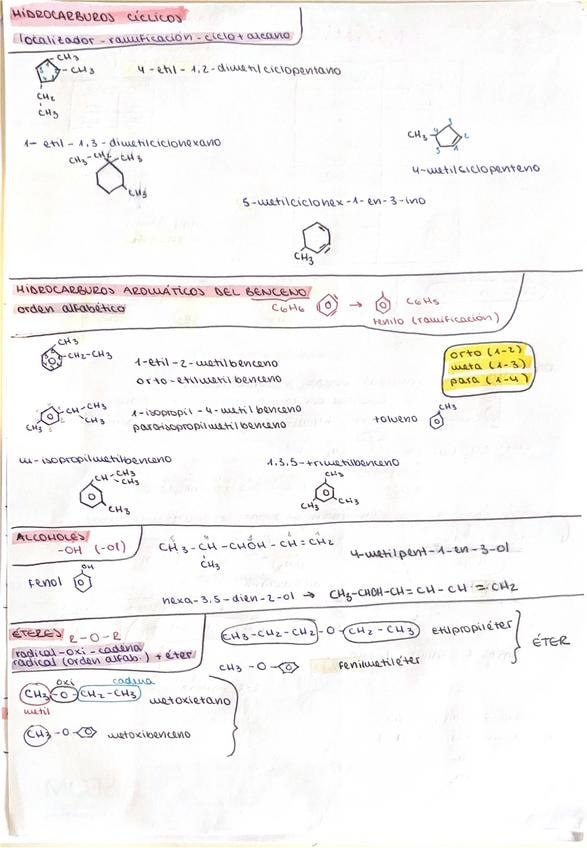 HIDROCARBUROS CÍCLICOS
localizador - ramificación - ciclo + alcano
CH3
CH3
CH2
CH3
4-etil-1,2-dimetilciclopentano
1-etil-1,3-dimetilciclohexano
CH3-CH2
CH3
CH3
CH3
3
4
2
5
1
4-metilciclopenteno
5-metilciclohex-1-en-3-ino
CH3
HIDROCARBUROS AROMÁTICOS DEL BENCENO
orden alfabético
C6H6 → C6H5
fenilo (ramificación)
CH3
CH2-CH3
1-etil-2-metilbenceno
orto-etilmetilbenceno
orto (1-2)
meta (1-3)
para (1-4)
CH-CH3
CH3
CH3
1-isopropil-4-metilbenceno
paraisopropilmetilbenceno
tolueno
CH3
m-isopropilmetilbenceno
CH-CH3
CH3
CH3
1,3,5-trimetilbenceno
CH3
CH3
CH3
ALCOHOLES
-OH (-ol)
CH3-CH-CHOH-CH=CH2
CH3
4-metilpent-1-en-3-ol
Fenol
OH
hexa-3,5-dien-2-ol → CH3-CHOH-CH=CH-CH=CH2
ÉTERES R-O-R
radical-oxi-cadena
radical (orden alfab.) + éter
CH3-CH2-CH2-O-CH2-CH3 etilpropiléter
CH3-O- fenilmetiléter
ÉTER
oxi cadena
CH3-O-CH2-CH3 metoxietano
metil
CH3-O- metoxibenceno